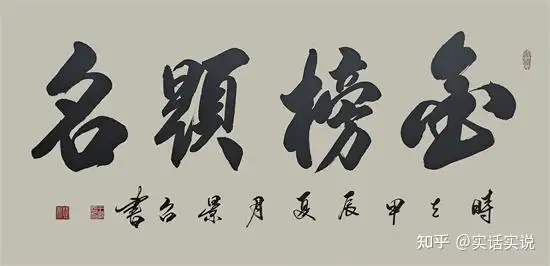 金榜題名
時在甲辰夏月景書
知乎 @实话实说